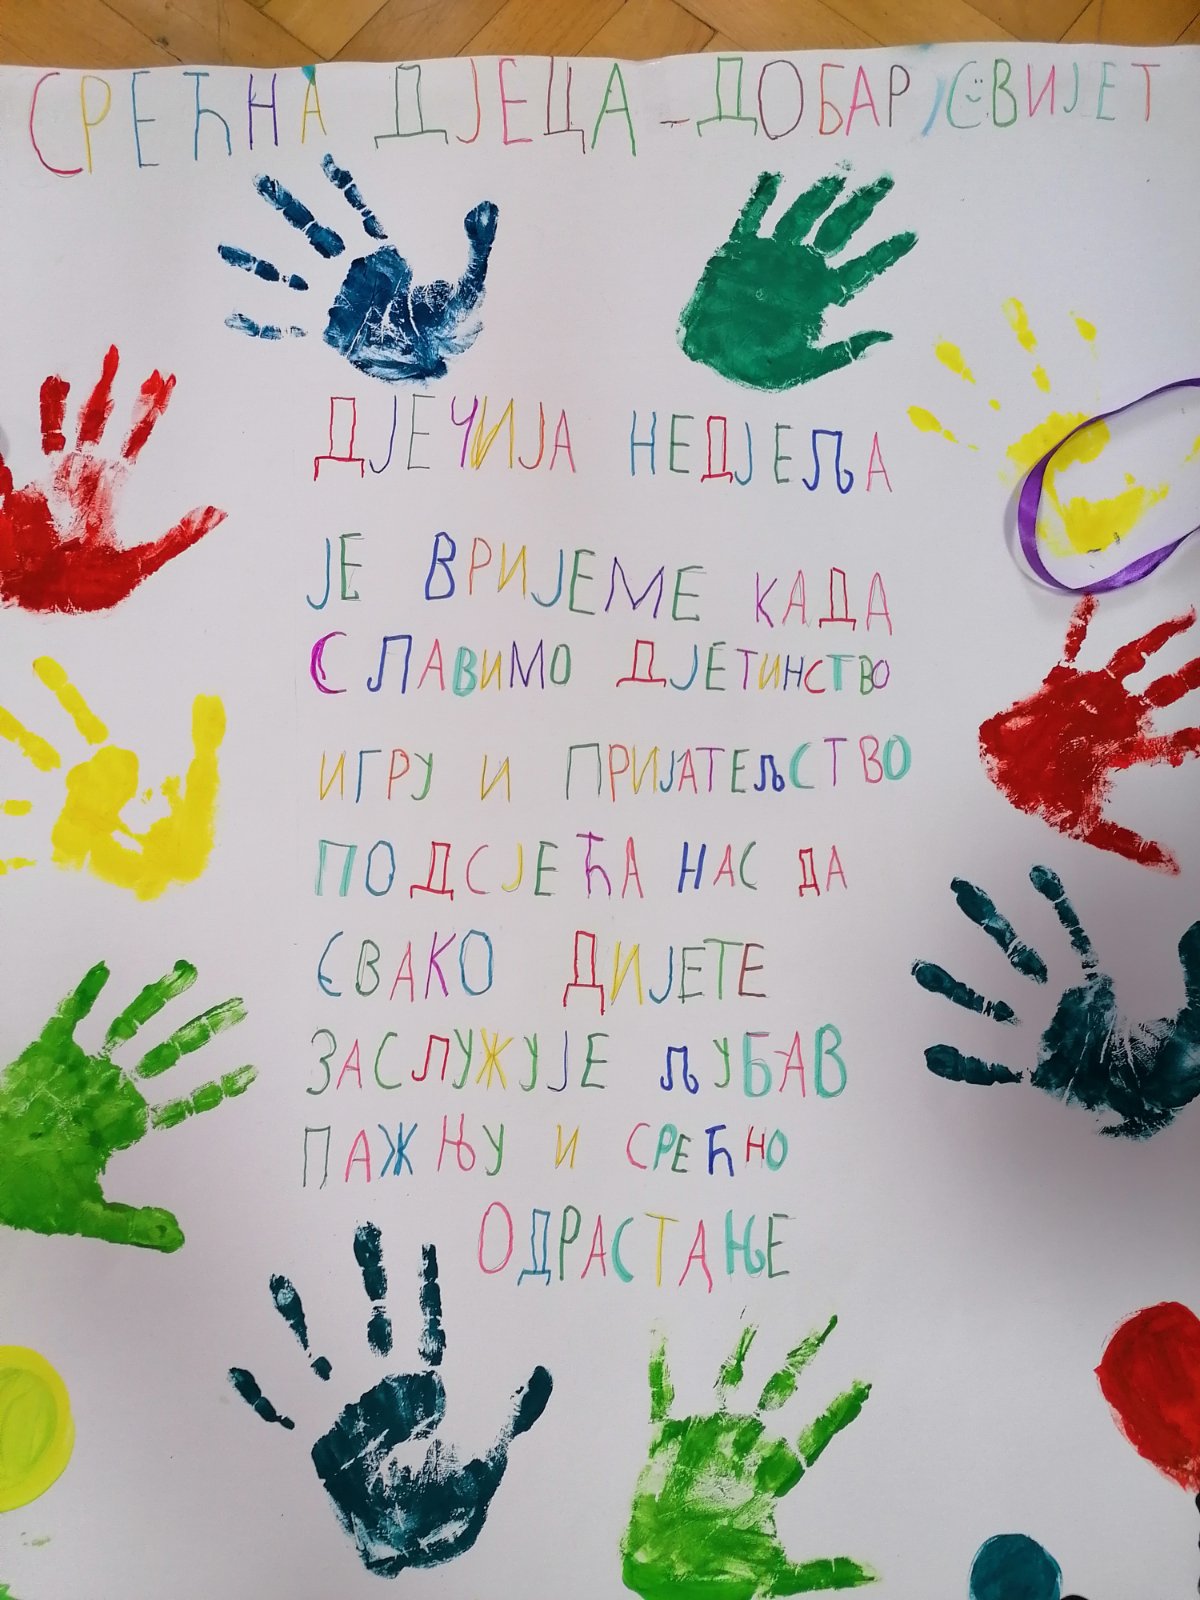 СРЕЋНА ДЈЕЦА - ДОБАР СВИЈЕТ
ДЈЕЧИЈА НЕДЈЕЉА
ЈЕ ВРИЈЕМЕ КАДА
СЛАВИМО ДЈЕТИНСТВО
ИГРУ И ПРИЈАТЕЉСТВО
ПОДСЈЕЋА НАС ДА
СВАКО ДИЈЕТЕ
ЗАСЛУЖУЈЕ ЉУБАВ
ПАЖЊУ И СРЕЋНО
ОДРАСТАЊЕ